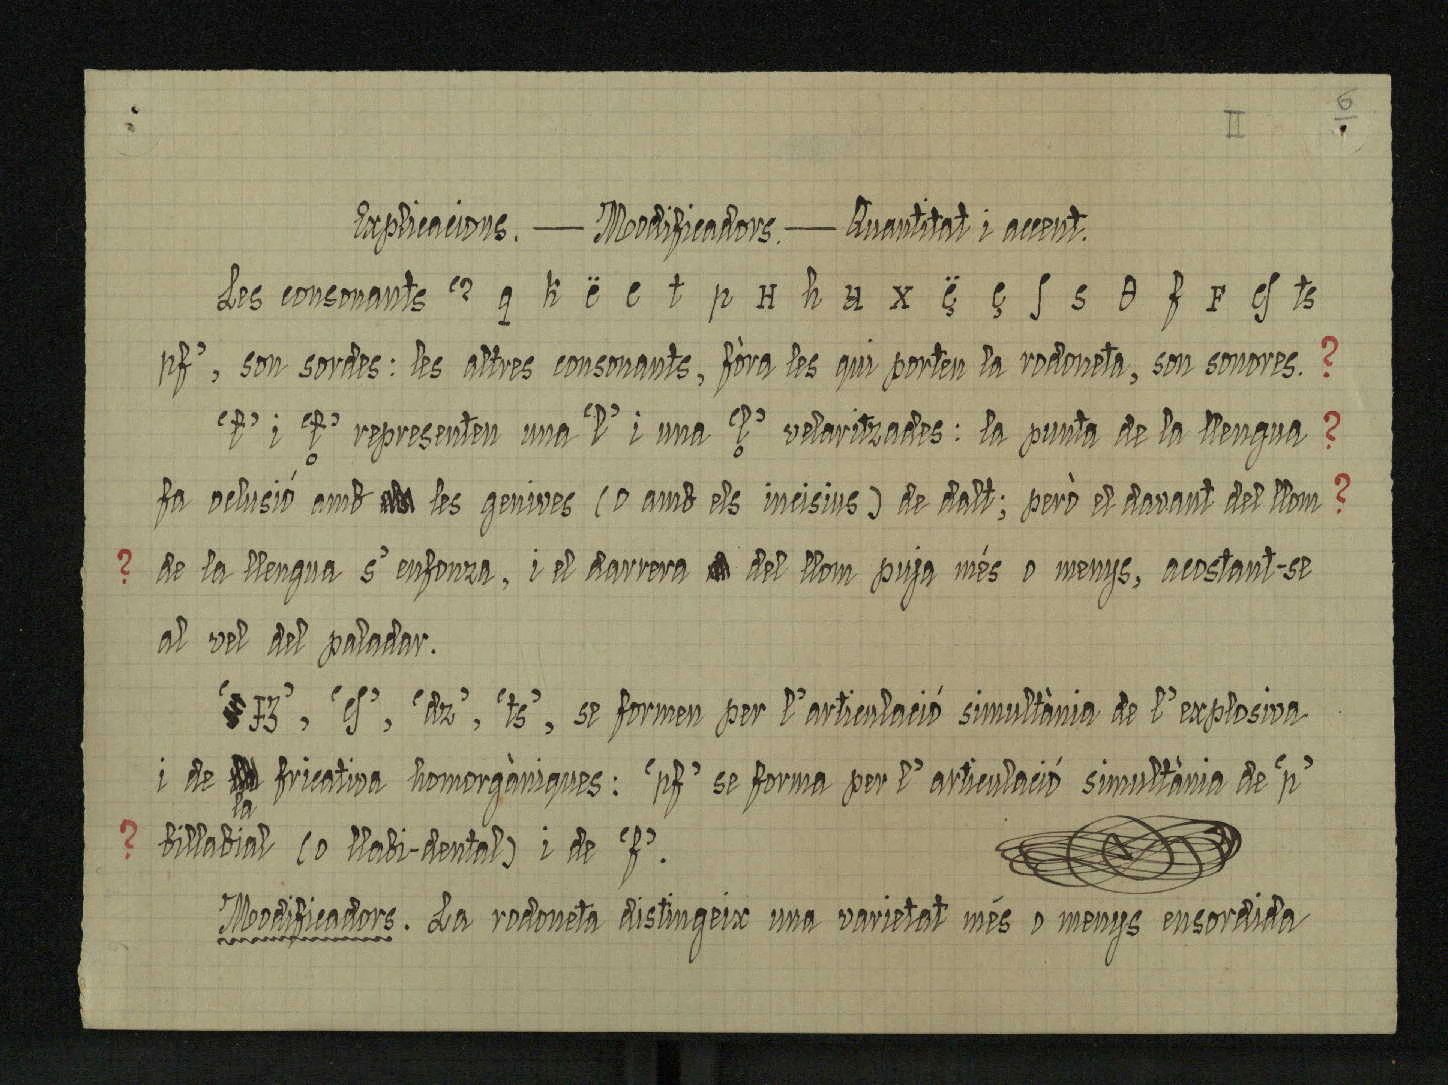 II 6
Explicacions. — Modificadors. — Quantitat i accent.
Les consonants ‘ʔ q k c̈ c t p ʜ h ᴚ x ç̈ ç ʃ s θ f ꜰ cʃ ts
pf’, son sordes: les altres consonants, fòra les qui porten la rodoneta, son sonores. ?
‘ɫ’ i ‘ɫ̥’ representen una ‘l’ i una ‘l̥’ velaritzades: la punta de la llengua ?
fa oclusió amb les genives (o amb els incisius) de dalt; però el davant del llom ?
? de la llengua s’enfonza, i el darrera del llom puja més o menys, acostant-se
al vel del paladar.
‘ɟʒ’, ‘cʃ’, ‘dz’, ‘ts’, se formen per l’articulació simultània de l’explosiva
i de la fricativa homorgàniques: ‘pf’ se forma per l’articulació simultània de ‘p’
? billabial (o llabi-dental) i de ‘f’.
Modificadors. La rodoneta distingeix una varietat més o menys ensordida